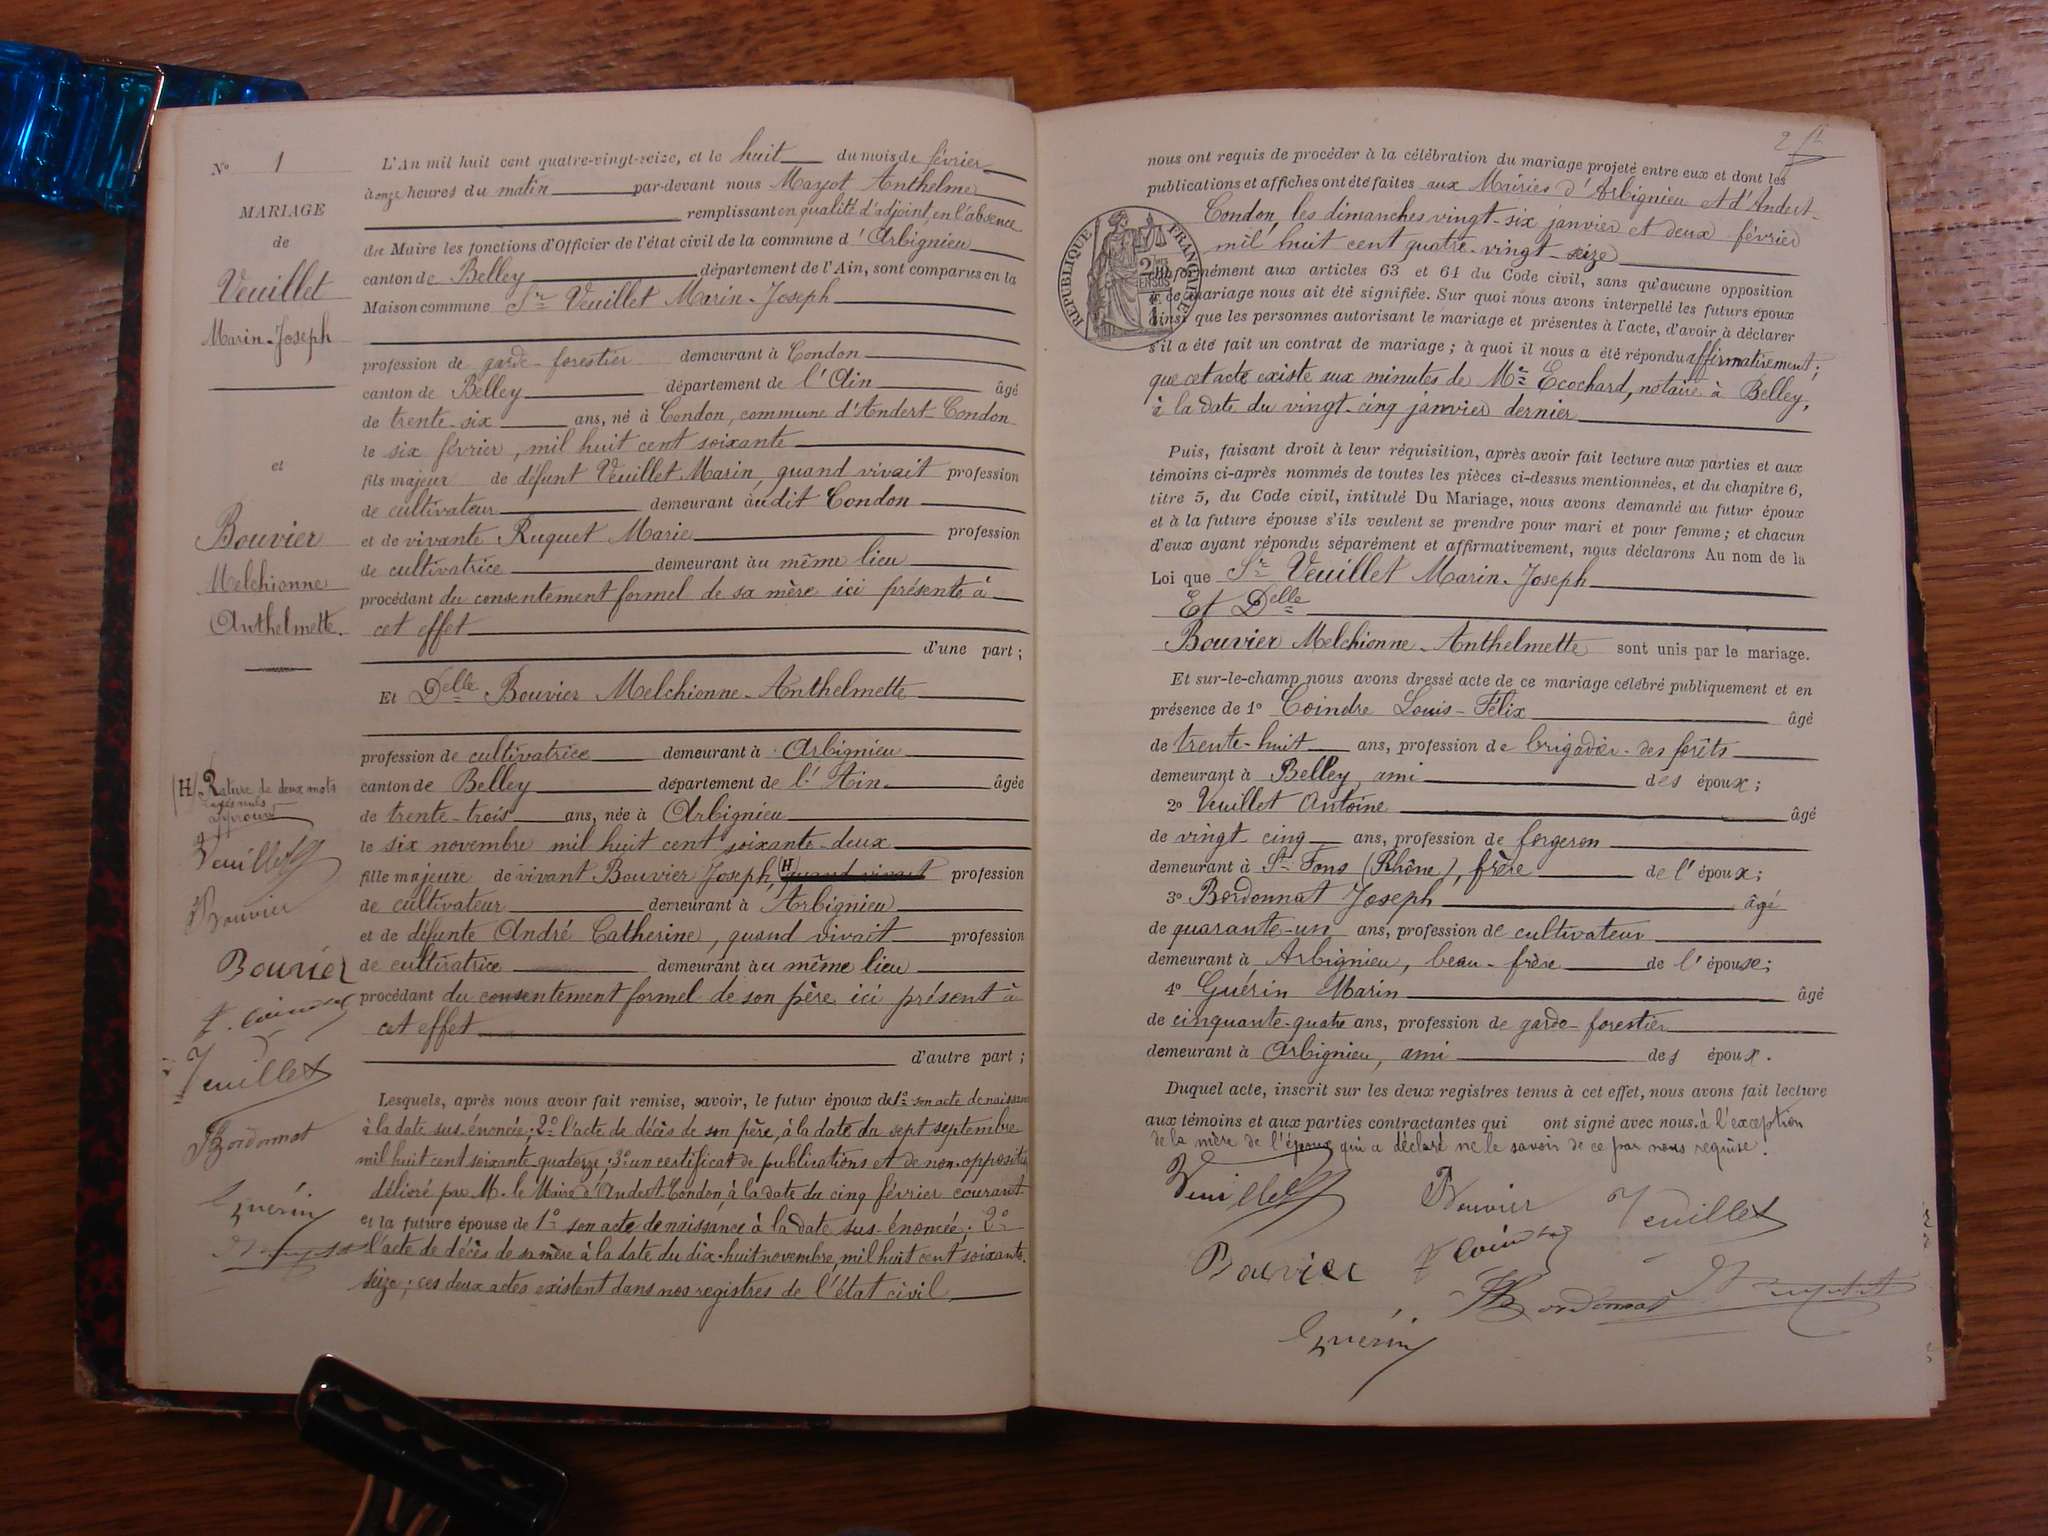 N° 1
MARIAGE
de
Veuillet
Marin-Joseph
et
Bouvier
Melchionne
Anthelmette.
(H) Rature de deux mots
rayés nuls
approuvé
Veuillet
Bouvier
Bouvier
F. Coindre
Veuillet
Bordonnat
Guérin
L'An mil huit cent quatre-vingt-seize, et le huit du mois de février
à onze heures du matin par-devant nous Mayot Anthelme
remplissant en qualité d'adjoint, en l'absence
du Maire les fonctions d'Officier de l'état civil de la commune d'Arbignieu
canton de Belley département de l'Ain, sont comparus en la
Maison commune Sr Veuillet Marin-Joseph
profession de garde-forestier demeurant à Condon
canton de Belley département de l'Ain âgé
de trente-six ans, né à Condon, commune d'Andert-Condon
le six février, mil huit cent soixante
fils majeur de défunt Veuillet Marin, quand vivait profession
de cultivateur demeurant audit Condon
et de vivante Ruguet Marie profession
de cultivatrice demeurant au même lieu
procédant du consentement formel de sa mère ici présente à
cet effet
d'une part ;
Et Delle Bouvier Melchionne-Anthelmette
profession de cultivatrice demeurant à Arbignieu
canton de Belley département de l'Ain âgée
de trente-trois ans, née à Arbignieu
le six novembre mil huit cent soixante-deux
fille majeure de vivant Bouvier Joseph, (H) quand vivait profession
de cultivateur demeurant à Arbignieu
et de défunte André Catherine, quand vivait profession
de cultivatrice demeurant au même lieu
procédant du consentement formel de son père ici présent à
cet effet
d'autre part ;
Lesquels, après nous avoir fait remise, savoir, le futur époux de 1° son acte de naissance
à la date sus-énoncée ; 2° l'acte de décès de son père, à la date du sept septembre
mil huit cent soixante-quatorze ; 3° un certificat de publications et de non-opposition
délivré par M. le Maire d'Andert-Condon, à la date du cinq février courant
et la future épouse de 1° son acte de naissance à la date sus-énoncée ; 2°
l'acte de décès de sa mère à la date du dix-huit novembre, mil huit cent soixante-
seize ; ces deux actes existent dans nos registres de l'état civil
nous ont requis de procéder à la célébration du mariage projeté entre eux et dont les
publications et affiches ont été faites aux Mairies d'Arbignieu et d'Andert-
Condon, les dimanches vingt-six janvier et deux février
mil huit cent quatre-vingt-seize
RÉPUBLIQUE FRANÇAISE
conformément aux articles 63 et 64 du Code civil, sans qu'aucune opposition
à ce mariage nous ait été signifiée. Sur quoi nous avons interpellé les futurs époux
ainsi que les personnes autorisant le mariage et présentes à l'acte, d'avoir à déclarer
s'il a été fait un contrat de mariage ; à quoi il nous a été répondu affirmativement ;
que cet acte existe aux minutes de Me Ecochard, notaire à Belley,
à la date du vingt-cinq janvier dernier
Puis, faisant droit à leur réquisition, après avoir fait lecture aux parties et aux
témoins ci-après nommés de toutes les pièces ci-dessus mentionnées, et du chapitre 6,
titre 5, du Code civil, intitulé Du Mariage, nous avons demandé au futur époux
et à la future épouse s'ils veulent se prendre pour mari et pour femme ; et chacun
d'eux ayant répondu séparément et affirmativement, nous déclarons Au nom de la
Loi que Sr Veuillet Marin-Joseph
Et Delle
Bouvier Melchionne-Anthelmette sont unis par le mariage.
Et sur-le-champ nous avons dressé acte de ce mariage célébré publiquement et en
présence de 1° Coindre Louis-Félix âgé
de trente-huit ans, profession de brigadier des forêts
demeurant à Belley, ami des époux ;
2° Veuillet Antoine âgé
de vingt cinq ans, profession de forgeron
demeurant à St Fons (Rhône), frère de l'époux ;
3° Bordonnat Joseph âgé
de quarante-un ans, profession de cultivateur
demeurant à Arbignieu, beau-frère de l'épouse ;
4° Guérin Marin âgé
de cinquante-quatre ans, profession de garde-forestier
demeurant à Arbignieu, ami des époux.
Duquel acte, inscrit sur les deux registres tenus à cet effet, nous avons fait lecture
aux témoins et aux parties contractantes qui ont signé avec nous. à l'exception
de la mère de l'époux qui a déclaré ne le savoir de ce par nous requise.
Veuillet Bouvier Veuillet
Bouvier F. Coindre
Bordonnat
Guérin